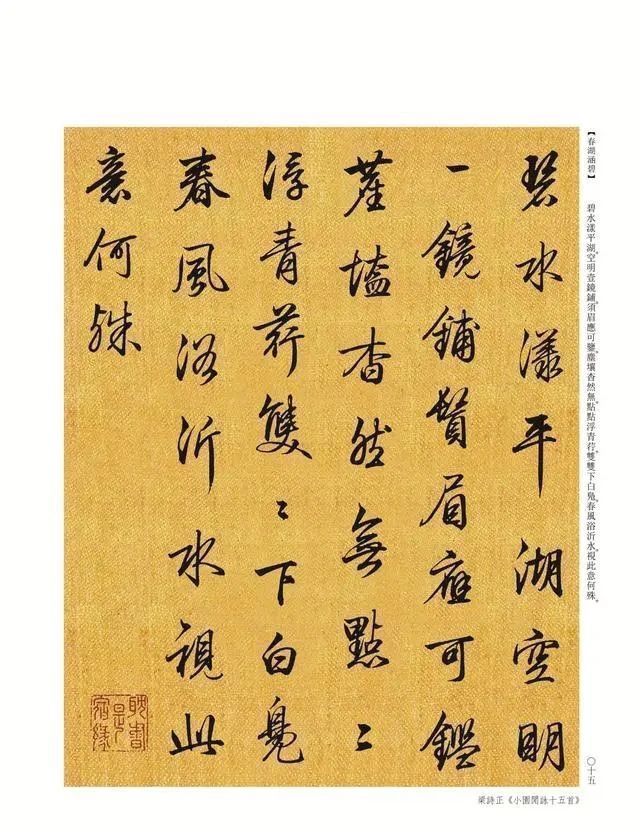 【春湖涵碧】
碧水漾平湖。空明壹鏡鋪。須眉應可鑒。塵壤杳然無。點點浮青荇。雙雙下白鳧。春風浴沂水。視此意何殊。
碧水漾平湖空明
一鏡鋪鬚眉應可鑑
塵壒杳然無點〻
浮青荇雙〻下白鳧
春風浴沂水視此
意何殊
耽書是宿緣
〇十五
梁詩正《小園閒詠十五首》